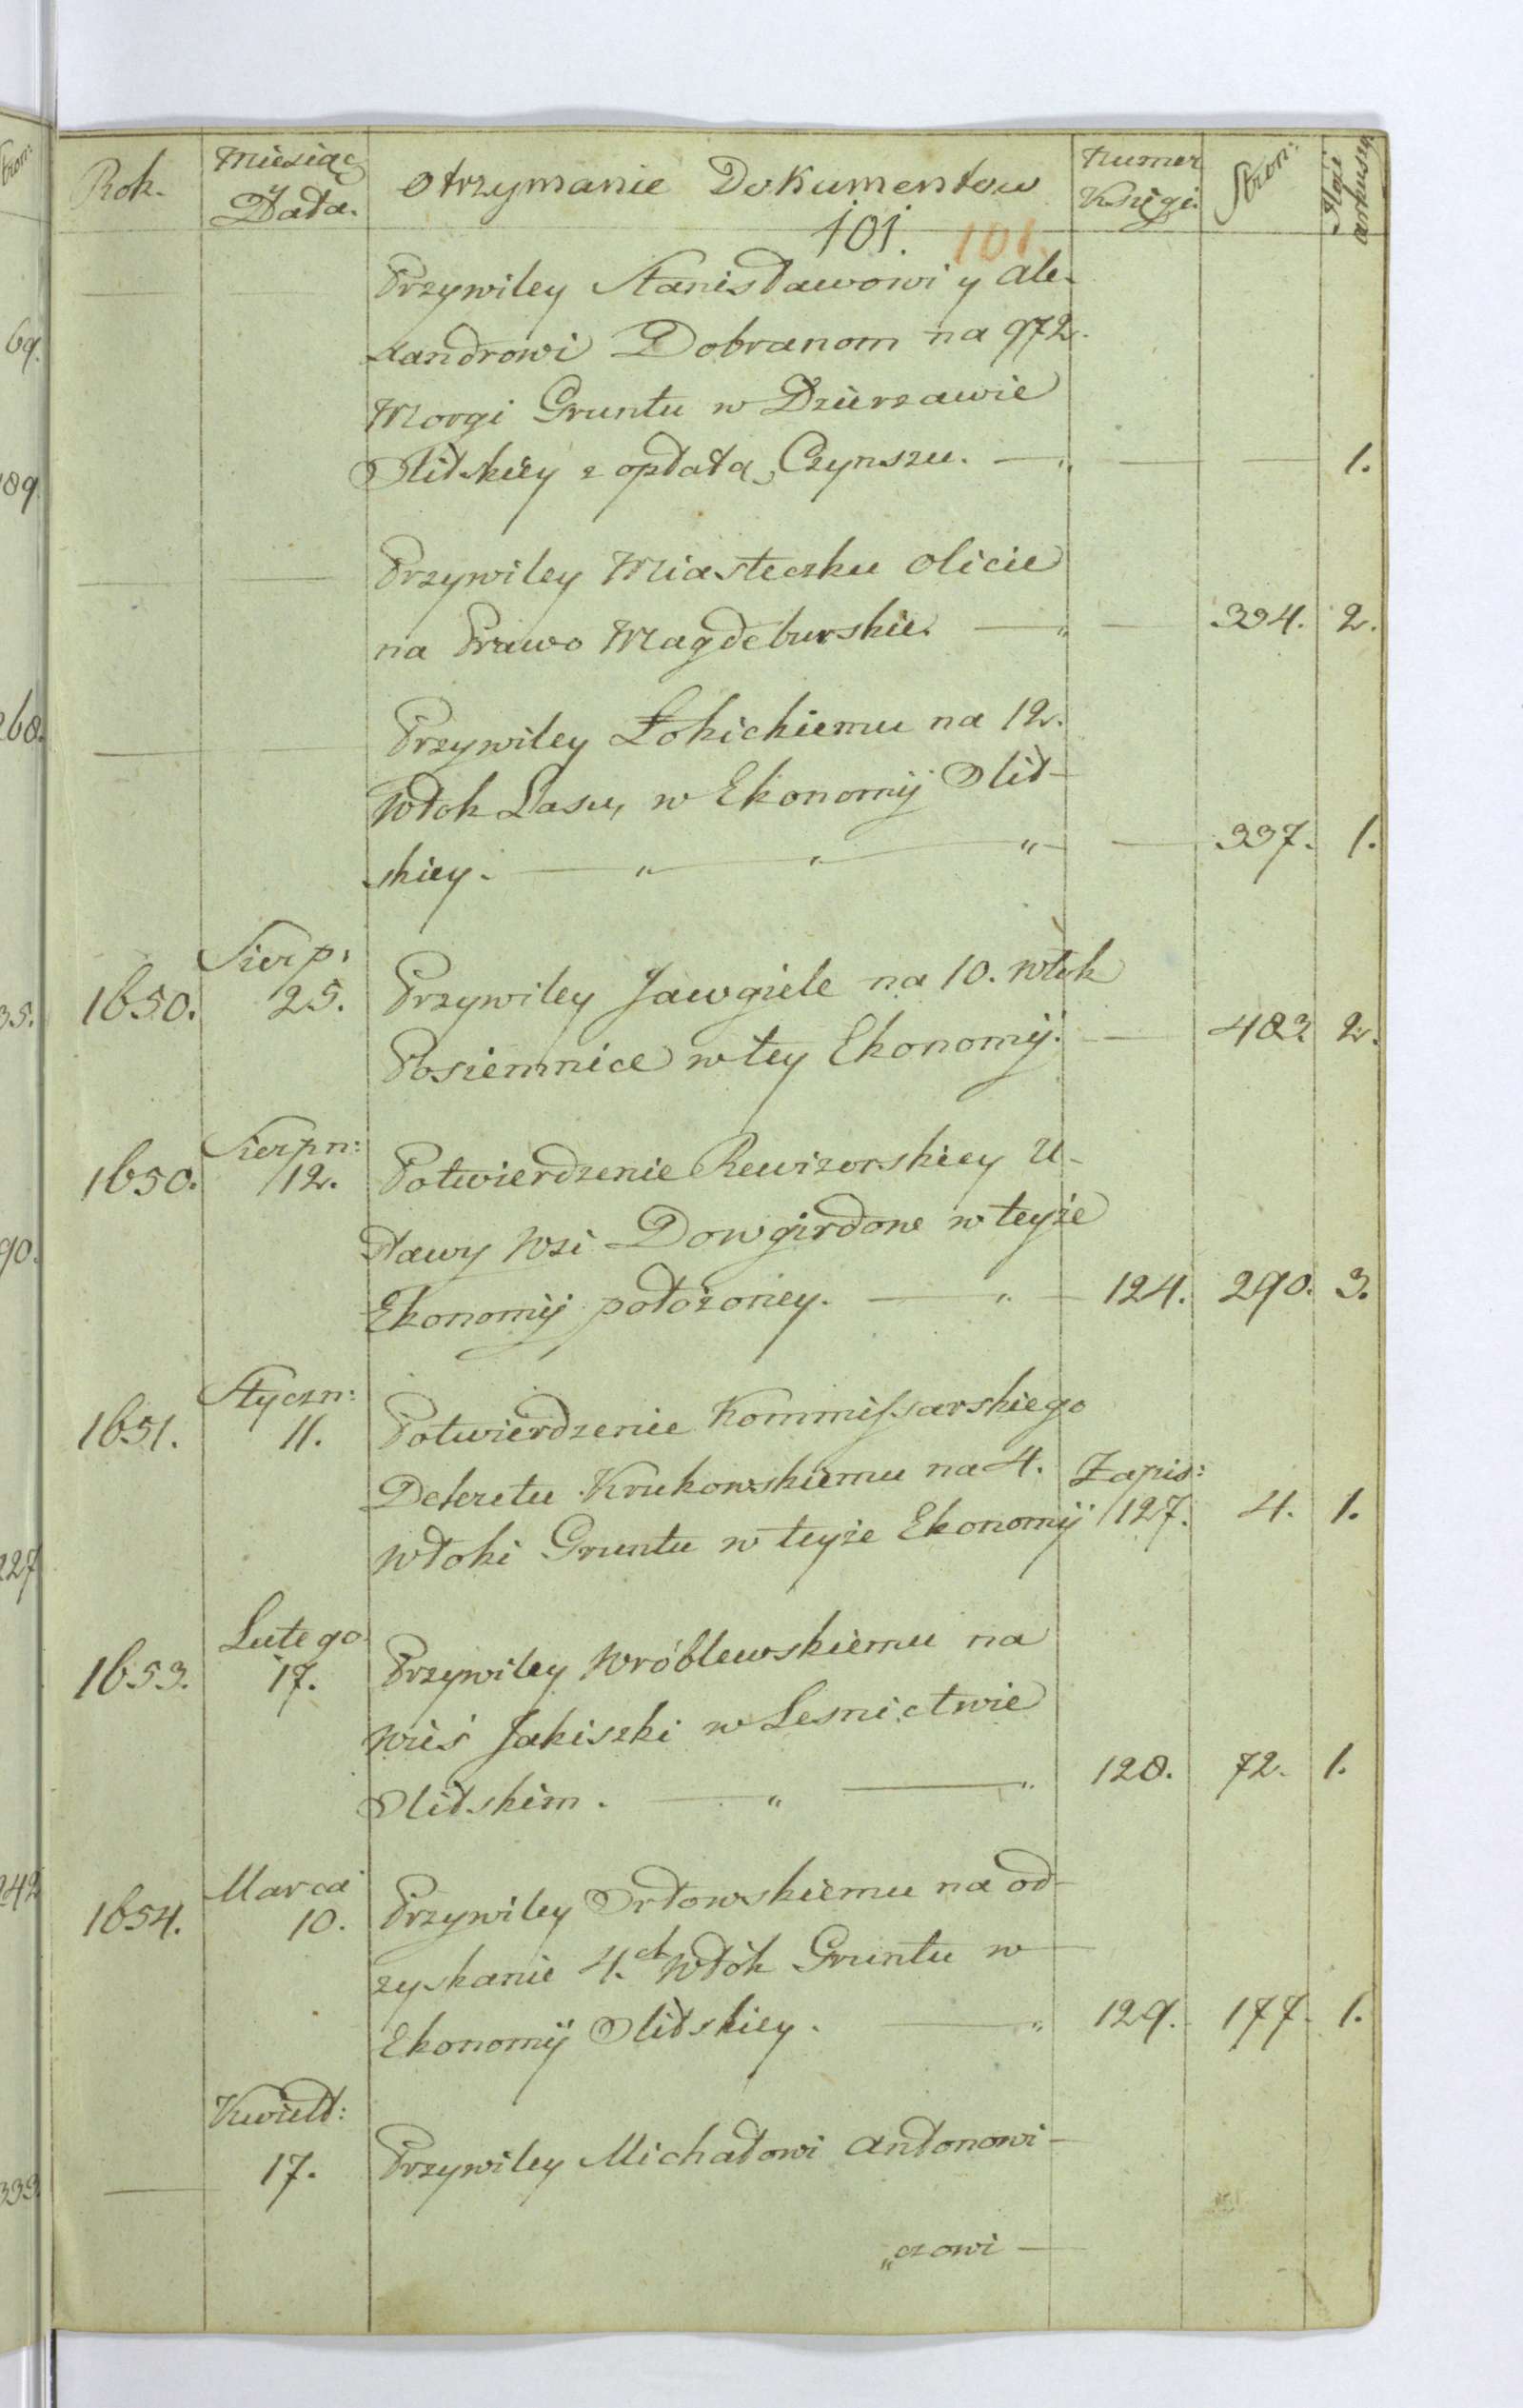 Rok. Miesiąc Otrzymanie Dokumentow Numer Stron: Ilość
y Data. Księgi. arkuszy.
101. 101.
Przywiley Stanisławowi y Ale-
xandrowi Dobranom na 972.
Morgi Gruntu w Dzierzawie
Olitskiey z opłatą Czynszu. — „ — — 1.
Przywiley Miasteczku Olicie
na Prawo Magdeburskie. — „ — 334. 2.
Przywiley Łokickiemu na 12.
Włok Lasu, w Ekonomij Olit-
skiey. — „ — „ — „ — — 337. 1.
Sierp:
1650. 25. Przywiley Jawgiele na 10. Włok
Posiemnice w tey Ekonomij. — 483 2.
Sierpn:
1650. 12. Potwierdzenie Rewizorskiey U-
stawy Wsi Dowgirdone w teyże
Ekonomij położoney. — „ — 124. 290. 3.
Styczn:
1651. 11. Potwierdzenie Kommissarskiego
Dekretu Krukowskiemu na 4. Zapis:
Włoki Gruntu w teyże Ekonomij 127. 4. 1.
Lutego
1653. 17. Przywiley Wróblewskiemu na
Wieś Jakiszki w Lesnictwie
Olitskim. — „ — „ 128. 72. 1.
Marca
1654. 10. Przywiley Orłowskiemu na od-
zyskanie 4.ch Włók Gruntu w
Ekonomij Olitskiey. — „ 129. 177. 1.
Kwiet:
— 17. Przywiley Michałowi Antonowi-
„czowi —
69.
189
268.
35.
90.
227
242
333